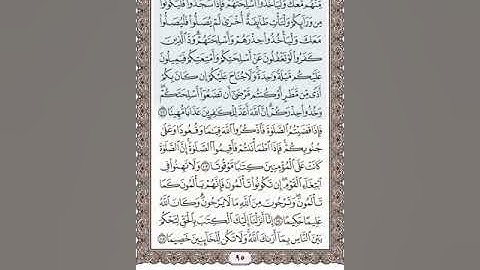 مِّنْهُم مَّعَكَ وَلْيَأْخُذُوٓا۟ أَسْلِحَتَهُمْ فَإِذَا سَجَدُوا۟ فَلْيَكُونُوا۟
مِن وَرَآئِكُمْ وَلْتَأْتِ طَآئِفَةٌ أُخْرَىٰ لَمْ يُصَلُّوا۟ فَلْيُصَلُّوا۟
مَعَكَ وَلْيَأْخُذُوا۟ حِذْرَهُمْ وَأَسْلِحَتَهُمْ ۗ وَدَّ ٱلَّذِينَ
كَفَرُوا۟ لَوْ تَغْفُلُونَ عَنْ أَسْلِحَتِكُمْ وَأَمْتِعَتِكُمْ فَيَمِيلُونَ
عَلَيْكُم مَّيْلَةً وَٰحِدَةً ۚ وَلَا جُنَاحَ عَلَيْكُمْ إِن كَانَ بِكُمْ
أَذًى مِّن مَّطَرٍ أَوْ كُنتُم مَّرْضَىٰٓ أَن تَضَعُوٓا۟ أَسْلِحَتَكُمْ ۖ
وَخُذُوا۟ حِذْرَكُمْ ۗ إِنَّ ٱللَّهَ أَعَدَّ لِلْكَٰفِرِينَ عَذَابًا مُّهِينًا ١٠٢
فَإِذَا قَضَيْتُمُ ٱلصَّلَوٰةَ فَٱذْكُرُوا۟ ٱللَّهَ قِيَٰمًا وَقُعُودًا وَعَلَىٰ
جُنُوبِكُمْ ۚ فَإِذَا ٱطْمَأْنَنتُمْ فَأَقِيمُوا۟ ٱلصَّلَوٰةَ ۚ إِنَّ ٱلصَّلَوٰةَ
كَانَتْ عَلَى ٱلْمُؤْمِنِينَ كِتَٰبًا مَّوْقُوتًا ١٠٣ وَلَا تَهِنُوا۟ فِى
ٱبْتِغَآءِ ٱلْقَوْمِ ۖ إِن تَكُونُوا۟ تَأْلَمُونَ فَإِنَّهُمْ يَأْلَمُونَ كَمَا
تَأْلَمُونَ ۖ وَتَرْجُونَ مِنَ ٱللَّهِ مَا لَا يَرْجُونَ ۗ وَكَانَ ٱللَّهُ
عَلِيمًا حَكِيمًا ١٠٤ إِنَّآ أَنزَلْنَآ إِلَيْكَ ٱلْكِتَٰبَ بِٱلْحَقِّ لِتَحْكُمَ
بَيْنَ ٱلنَّاسِ بِمَآ أَرَىٰكَ ٱللَّهُ ۚ وَلَا تَكُن لِّلْخَآئِنِينَ خَصِيمًا ١٠٥
٩٥